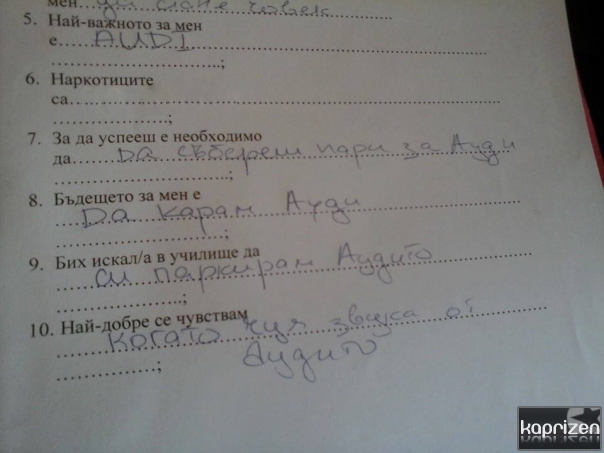 мен да стане човек
5. Най-важното за мен
е.....AUDI.....
........................;
6. Наркотиците
са........................
........................;
7. За да успееш е необходимо
да.....да събереш пари за Ауди
........................;
8. Бъдещето за мен е
....Да карам Ауди....
........................;
9. Бих искал/а в училище да
.....си паркирам Аудито.....
........................;
10. Най-добре се чувствам
.....когато чуя звука от
Аудито
...............;
kaprizen